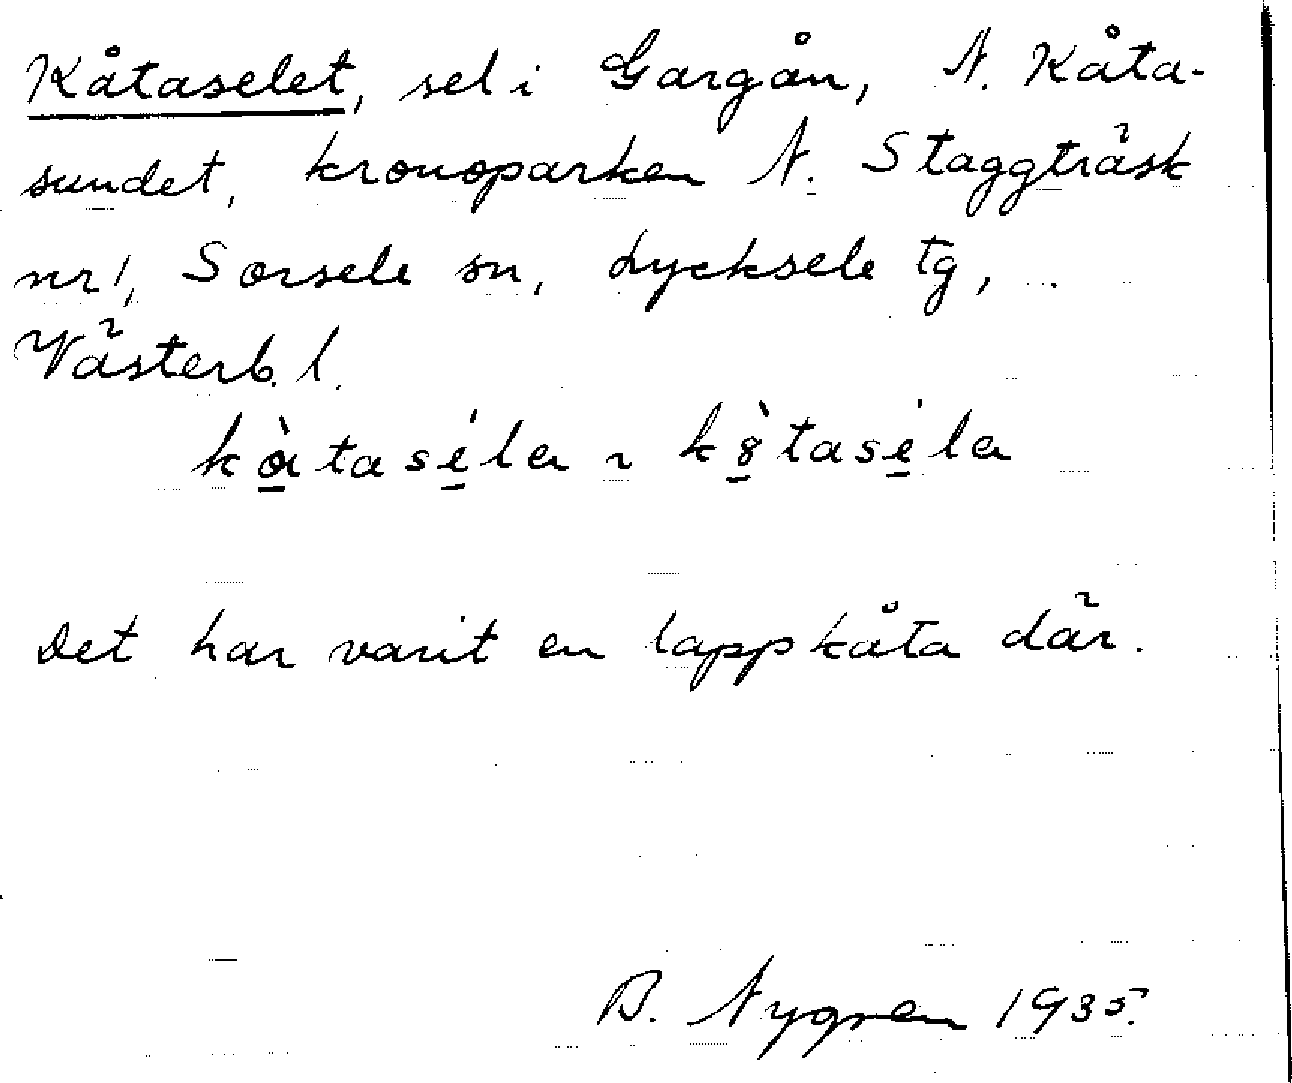 Kåtaselet, sel i Gargån, N. Kåta-
sundet, kronoparken N. Staggträsk
nr 1, Sorsele sn, Lycksele tg,
Västerb. l.
kàtaséla ~ kò̱taséla
Det har varit en lappkåta där.
B. Nygren 1935.